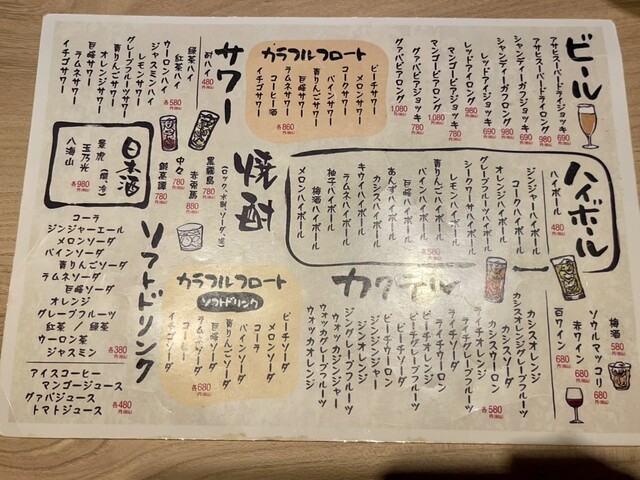 ビール
アサヒスーパードライジョッキ 690円(税込)
アサヒスーパードライロング 980円(税込)
シャンディーガフジョッキ 690円(税込)
シャンディーガフロング 980円(税込)
レッドアイジョッキ 690円(税込)
レッドアイロング 980円(税込)
マンゴービアジョッキ 780円(税込)
マンゴービアロング 1,080円(税込)
グァバビアジョッキ 780円(税込)
グァバビアロング 1,080円(税込)
カラフルフロート
ピーチサワー
メロンサワー
コークサワー
パインサワー
青りんごサワー
巨峰サワー
ラムネサワー
コーヒー酒
イチゴサワー
各860円(税込)
サワー
酎ハイ 480円(税込)
緑茶ハイ
紅茶ハイ
ウーロンハイ
ジャスミンハイ
レモンサワー
グレープフルーツサワー
オレンジサワー
青りんごサワー
巨峰サワー
ラムネサワー
イチゴサワー
各580円(税込)
ハイボール
ハイボール 480円(税込)
ジンジャーハイボール
コークハイボール
オレンジハイボール
グレープフルーツハイボール
シークワーサーハイボール
レモンハイボール
青りんごハイボール
パインハイボール
巨峰ハイボール
あんずハイボール
カシスハイボール
キウイハイボール
ラムネハイボール
柚子ハイボール
梅酒ハイボール
メロンハイボール
各580円(税込)
焼酎
(ロック、水割、ソーダ、湯)
黒霧島 780円(税込)
赤兎馬 880円(税込)
中々 780円(税込)
鍛高譚 780円(税込)
日本酒
(燗、冷)
玉乃光
八海山
各980円(税込)
カクテル
カシスオレンジ
カシスグレープフルーツ
カシスソーダ
カシスウーロン
ライチオレンジ
ライチグレープフルーツ
ライチウーロン
ライチソーダ
ピーチオレンジ
ピーチグレープフルーツ
ピーチウーロン
ピーチソーダ
ジンジンジャー
ジンオレンジ
ジングレープフルーツ
ウォッカジンジャー
ウォッカグレープフルーツ
ウォッカオレンジ
各580円(税込)
梅酒 580円(税込)
ソウルマッコリ 680円(税込)
赤ワイン 680円(税込)
白ワイン 680円(税込)
カラフルフロート
ソフトドリンク
ピーチソーダ
メロンソーダ
コーラ
パインソーダ
青りんごソーダ
巨峰ソーダ
ラムネソーダ
コーヒー
イチゴソーダ
各680円(税込)
ソフトドリンク
コーラ
ジンジャーエール
メロンソーダ
パインソーダ
青りんごソーダ
ラムネソーダ
巨峰ソーダ
オレンジ
グレープフルーツ
紅茶 / 緑茶
ウーロン茶
ジャスミン
各380円(税込)
アイスコーヒー
マンゴージュース
グァバジュース
トマトジュース
各480円(税込)